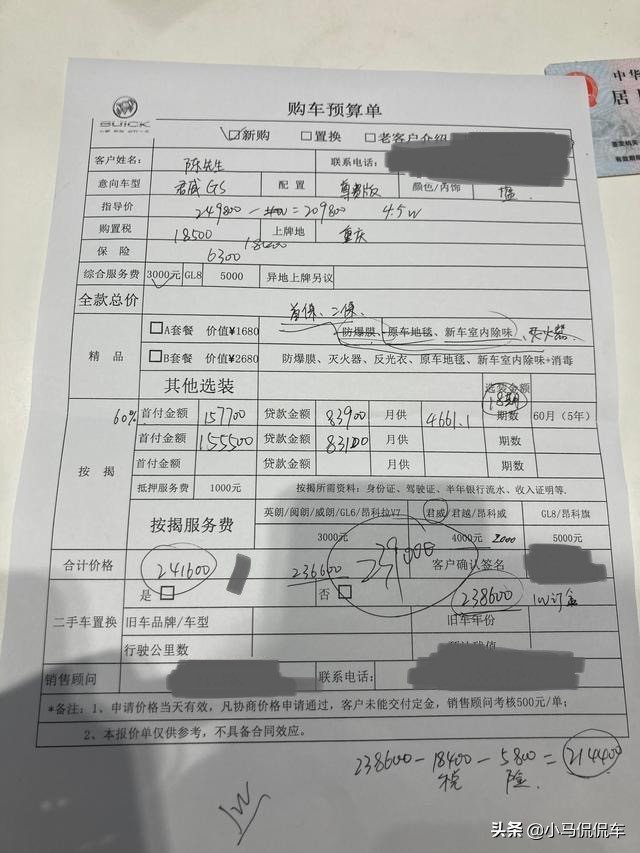 BUICK
购车预算单
中华
居
新购 置换 老客户介绍
客户姓名: 陈先生 联系电话:
意向车型 君威GS 配置 尊贵版 颜色/内饰
指导价 249800 - = 209800 4.5W
购置税 18500 上牌地 重庆
保险 6300
综合服务费 3000元 GL8 5000 异地上牌另议
全款总价
首保、二保、
精品 A套餐 价值¥1680 防爆膜、原车地毯、新车室内除味、灭火器
B套餐 价值¥2680 防爆膜、灭火器、反光衣、原车地毯、新车室内除味+消毒
其他选装 选装金额
18期
60% 首付金额 157700 贷款金额 83900 月供 4661.1 期数 60月(5年)
首付金额 155500 贷款金额 83100 月供 期数
按揭 首付金额 贷款金额 月供 期数
抵押服务费 1000元 按揭所需资料:身份证、驾驶证、半年银行流水、收入证明等.
按揭服务费 英朗/阅朗/威朗/GL6/昂科拉V7 君威/君越/昂科威 GL8/昂科旗
3000元 4000元 2000 5000元
合计价格 241600 236600 239000 客户确认签名
是 否 238600 1W订金
二手车置换 旧车品牌/车型 旧车年份
行驶公里数
销售顾问 联系电话:
*备注:1、申请价格当天有效,凡协商价格申请通过,客户未能交付定金,销售顾问考核500元/单;
2、本报价单仅供参考,不具备合同效应。
238600-18400-5800=214400
税 险
1W
头条 @小马侃侃车